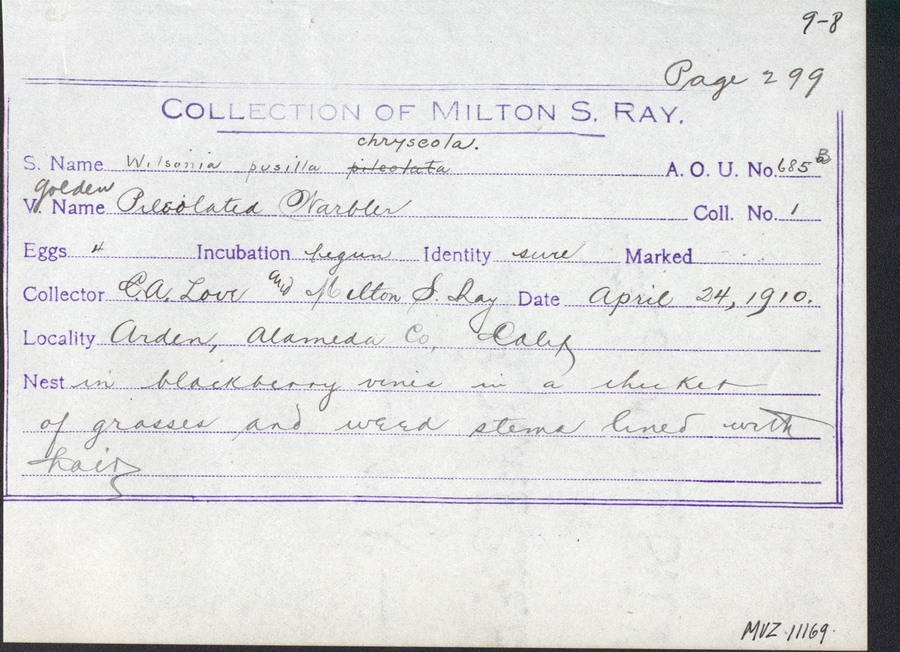 9-8
Page 299
COLLECTION OF MILTON S. RAY.
chryseola.
S. Name Wilsonia pusilla pileolata A. O. U. No. 685 B
golden
V. Name Pileolated Warbler Coll. No. 1
Eggs 4 Incubation begun Identity sure Marked
Collector C.A. Love and Milton S. Ray Date April 24, 1910.
Locality Arden, Alameda Co., Calif
Nest in blackberry vines in a thicket
of grasses and weed stems lined with
hair
MVZ 11169